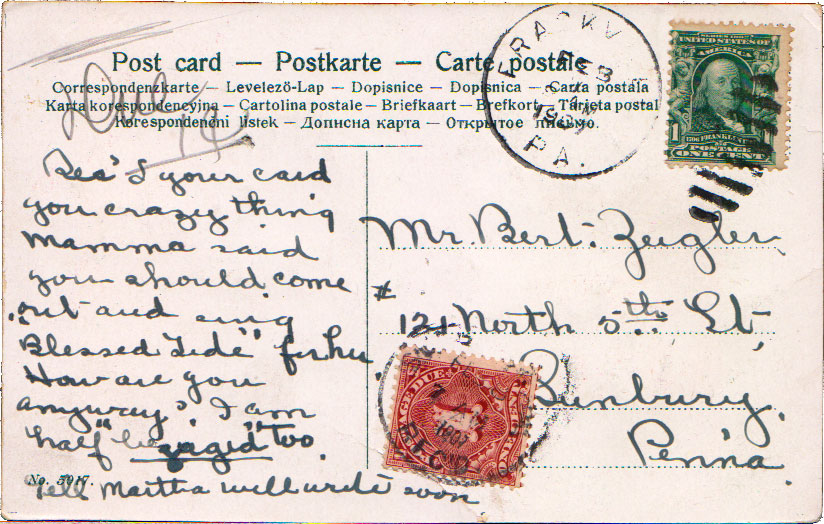 Post card — Postkarte — Carte postale
Correspondenzkarte — Levelező-Lap — Dopisnice — Dopisnica — Carta postala
Karta korespondencyjna — Cartolina postale — Briefkaart — Brefkort — Tarjeta postal
Korespondenční lístek — Дописна карта — Открытое письмо.
FRACKV
FEB
190
PA.
UNITED STATES OF
AMERICA
1
FRANKLIN
POSTAGE
ONE CENT
Rec'd your card
you crazy thing
Mamma said
you should come
out and sing
"Blessed Tide" for her.
How are you
anyway? I am
half "engaged" too
No. 5917.
Tell Martha will write soon
Mr. Bert. Zeigler
# 121 North 5th St,
Sunbury,
Penna.
POSTAGE DUE
1907
REC'D